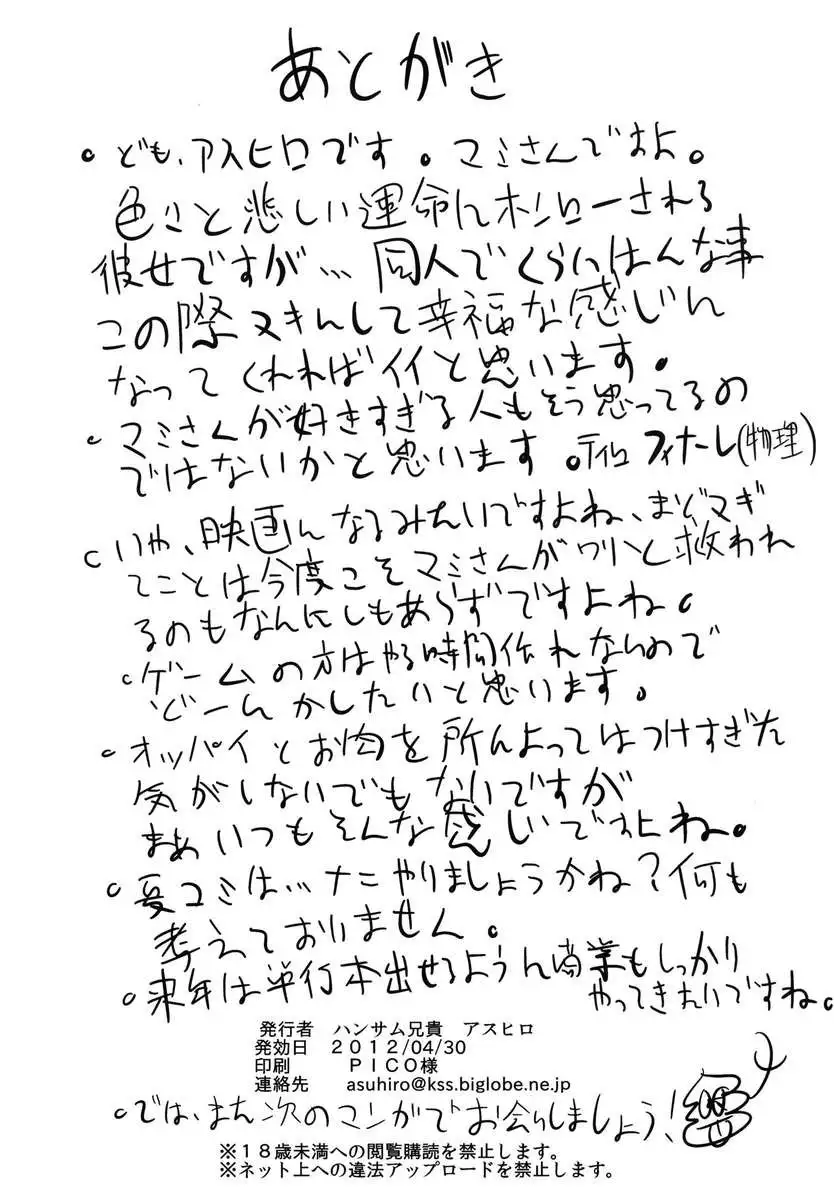 あとがき
• ども、アスヒロです。マミさんですよ。
色々と悲しい運命にホンローされる
彼女ですが… 同人でくらいはんな事
この際ヌキにして幸福な感じに
なってくれればイイと思います。
• マミさんが好きすぎる人もそう思ってるの
ではないかと思います。ティロ フィナーレ(物理)
• いや、映画になるみたいですよね、まどマギ
てことは今度こそマミさんがワリと救われ
るのもなんにしもあらずですよね。
• ゲームの方はやる時間作れないので
どーにかしたいと思います。
• オッパイとお肉を所によってはつけすぎた
気がしないでもないですが
まぁいつもそんな感じですよね。
• 夏コミは…ナニやりましょうかね？何も
考えておりません。
• 来年は単行本出せるように商業もしっかり
やってきたいですね。
発行者 ハンサム兄貴 アスヒロ
発効日 ２０12/04/30
印刷 ＰＩＣＯ様
連絡先 asuhiro@kss.biglobe.ne.jp
• では、また次のマンガでお会いしましょう！
※１８歳未満への閲覧購読を禁止します。
※ネット上への違法アップロードを禁止します。